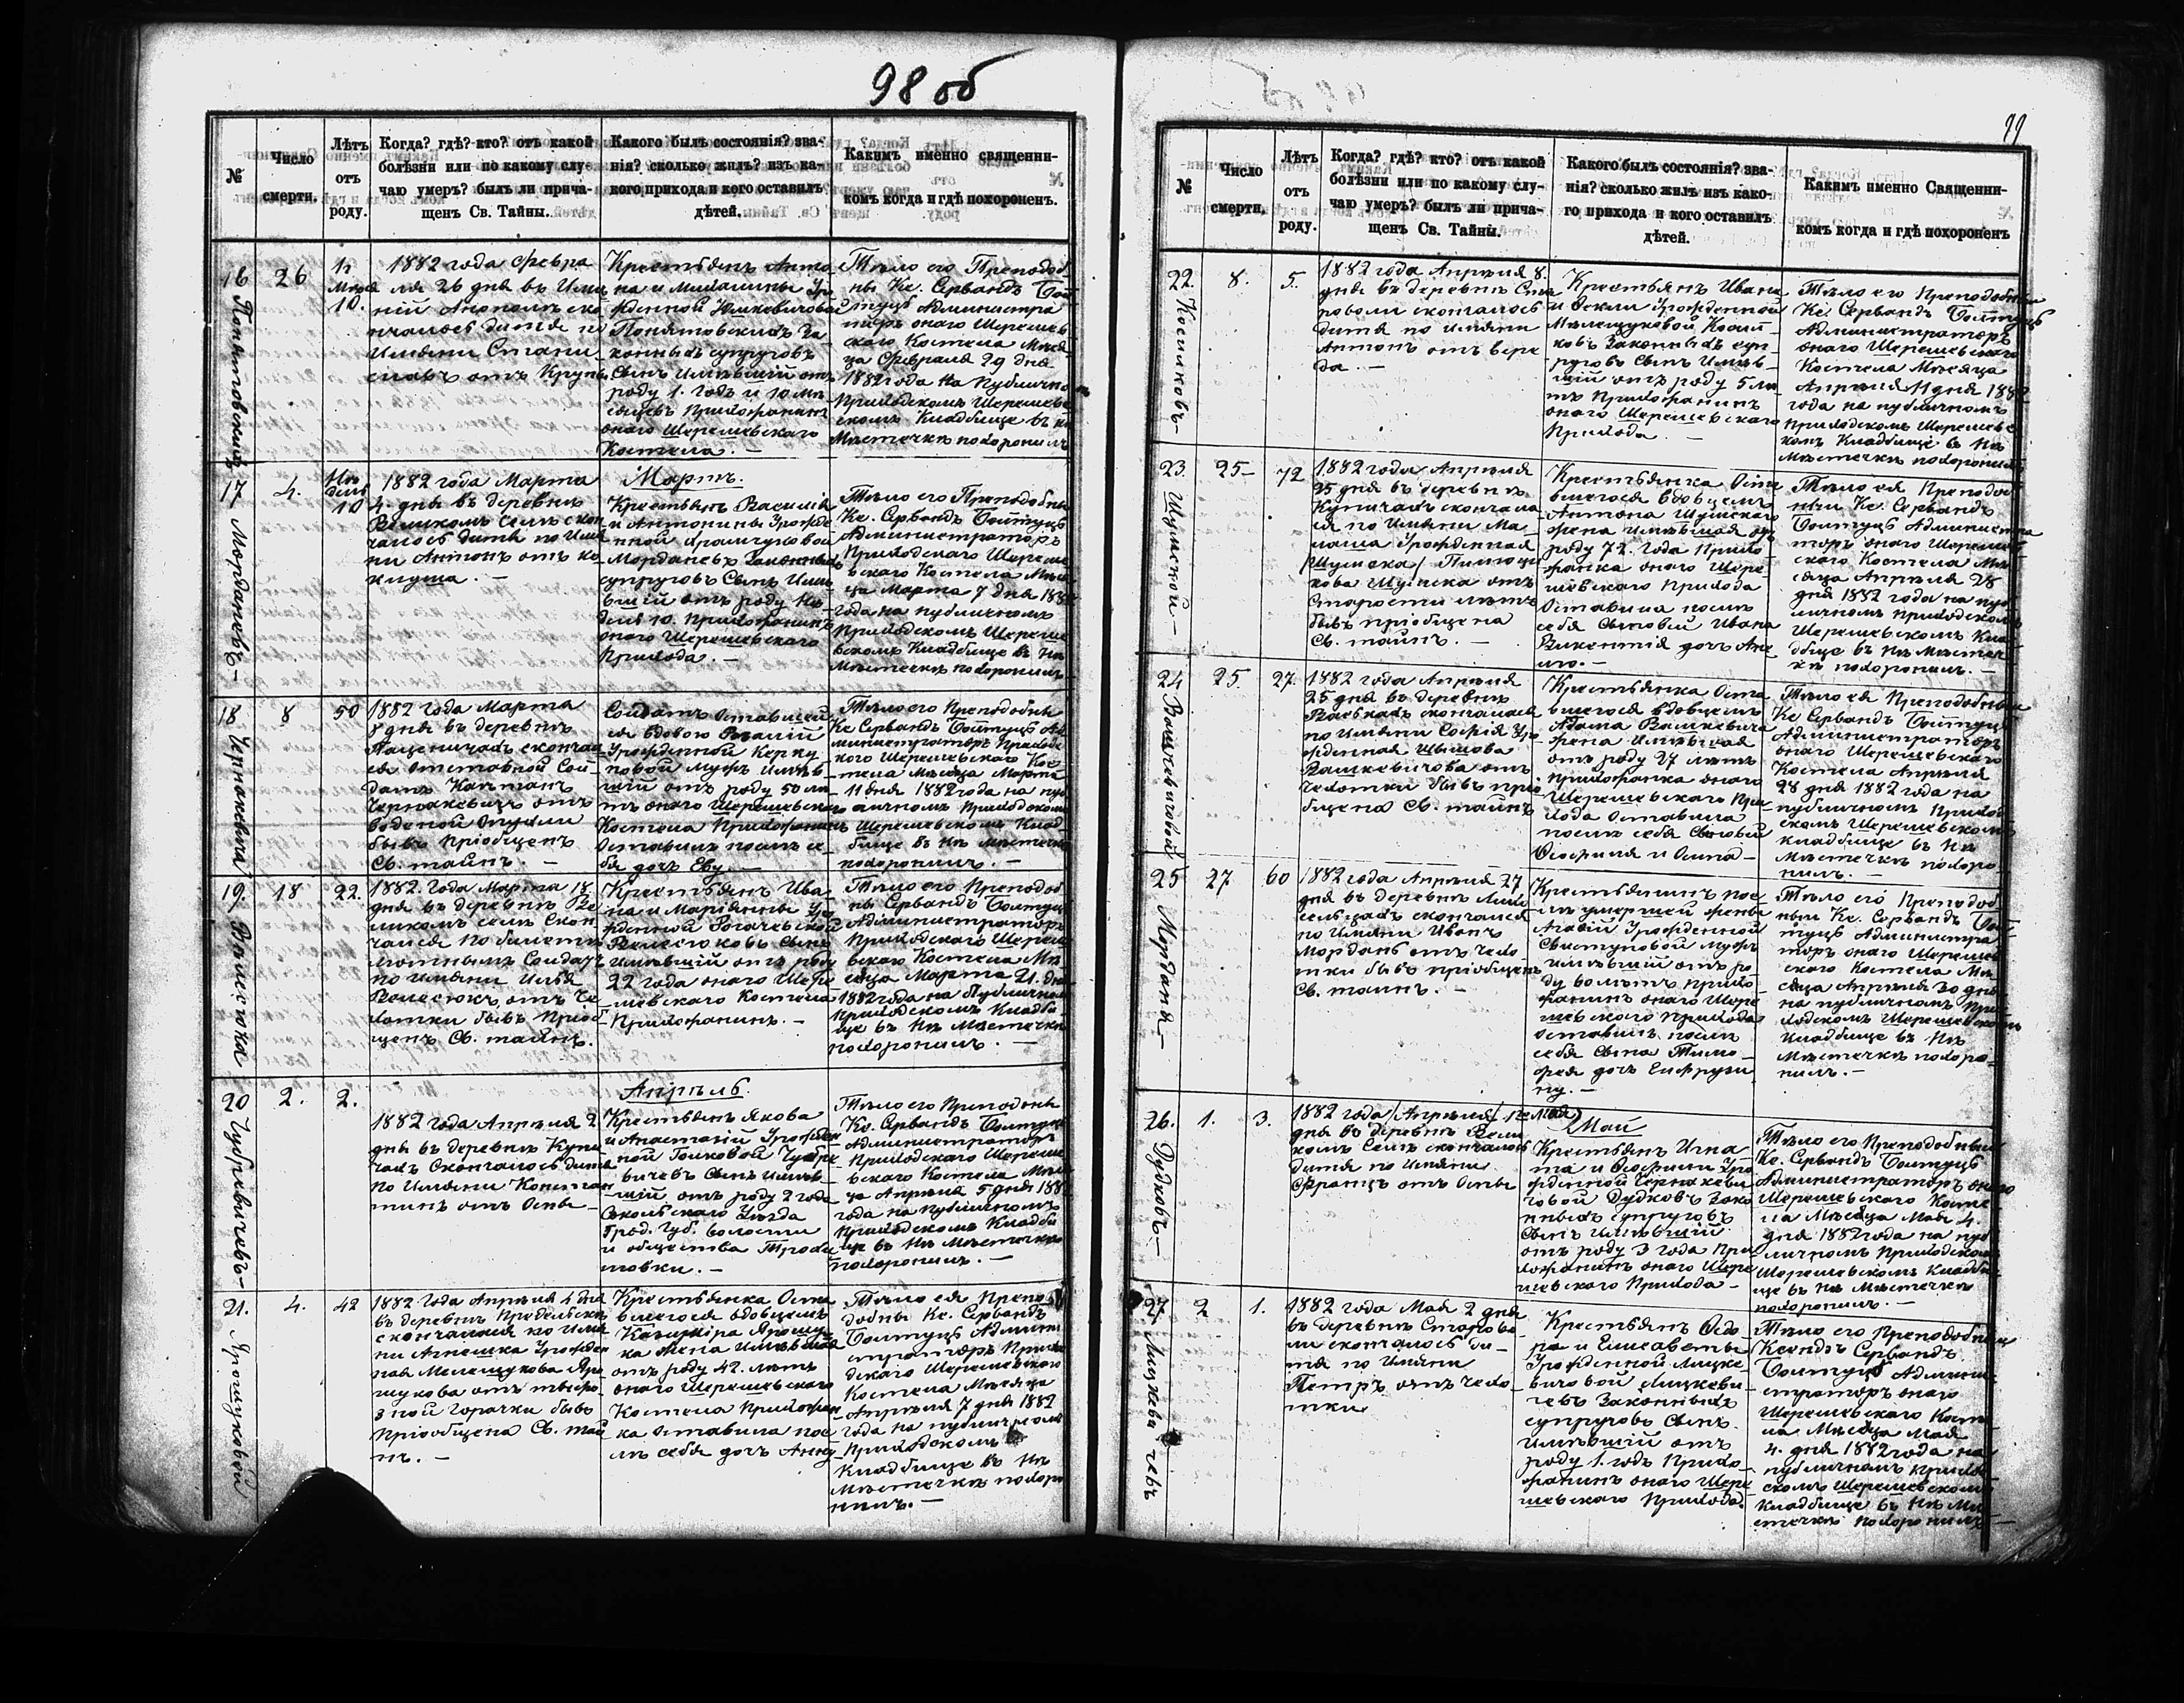 98 об
№
Число
смерти.
Лѣтъ
отъ
роду.
Когда? гдѣ? кто? отъ какой
болѣзни или по какому слу-
чаю умеръ? былъ ли прича-
щенъ Св. Тайны.
Какого былъ состоянія? зва-
нія? сколько жилъ? изъ ка-
кого прихода и кого оставилъ
дѣтей.
Какимъ именно священни-
комъ когда и гдѣ похороненъ.
16
26
1882 года Февра
ля 26 дня въ Име
ній Анополь ско
нчалось дитя по
Имяни Стани
славъ отъ Крупъ
Крестьянъ Анто
на и
Понятовскихъ За
конныхъ супруговъ
Сынъ Имѣвшій отъ
роду 1. годъ и 10 мѣ
сяцевъ Прихожанинъ
онаго Шерешевскаго
Костела. —
Тѣло его Преподоб
ны Кс. Сервандъ Болтуць
Администра
торъ онаго Шерешев
скаго Костела Мѣся
ца Февраля 29 дня
1882 года на Публичном
Приходскомъ Шерешев
скомъ Кладбище въ нѣ
Мѣстечкѣ похоронилъ
17
4.
10
Мордачевъ —
1882 года Марта
4. дня въ деревнѣ
Великомъ Селѣ скон
чалось дитя по Имя
ни Антонъ отъ ко
клуша. —
Мартъ.
Крестьянъ Василія
и Антонины Урожде
нной Храмчуковой
супруговъ Сынъ Имѣ
вшій отъ роду Не
дель 10. Прихожанинъ
онаго Шерешевскаго
Прихода. —
Тѣло его Преподобны
Кс. Сервандъ Болтуць
Администраторъ
Приходскаго Шереше
вскаго Костела Мѣся
ца Марта 7 дня 1882
года на публичномъ
Приходскомъ Шереше
вскомъ Кладбище въ Нѣ
Мѣстечкѣ похоронилъ
18
8
50
1882 года Марта
8 дня въ деревнѣ
Пащеничахъ скончал
ся Отставной Сол
датъ
Чернакевичъ отъ
водяной опухли
бывъ Пріобщенъ
Св. тайнъ. —
Солдатъ Оставшей
ся вдовою Розаліи
Урожденной Керну
повой мужъ Имѣв
шій отъ роду 50 лѣ
тъ онаго Шерешевскаго
Костела Прихожанинъ
Оставилъ послѣ се
бя дочь Еву. —
Тѣло его Преподобны
Кс Сервандъ Болтуць Ад
министраторъ Приходс
кого Шерешевскаго Кос
тела Мѣсяца Марта
11 дня 1882 года на пуб
личномъ Приходскомъ
Шерешевскомъ Клад
бище въ Нѣ Мѣстечкѣ
похоронилъ. —
19.
18
22.
1882. года Марта 18.
дня въ деревнѣ Ве
ликомъ селѣ Скон
чался По билетъ
по Имяни Илья
Волесюкъ отъ Че
хотки бывъ Приоб
щенъ Св. тайнъ.
Крестьянъ Ива
на и Маріянны Уро
жденной Рогачевской
Волесюковъ Сынъ
Имѣвшій отъ роду
22 года онаго Шере
шевского Костела
Прихожанинъ. —
Тѣло его Преподоб
ны Сервандъ Болтуць
Администраторъ
Приходскаго Шереше
вскаго Костела Мѣ
сяца Марта 21. дня
1882 года на Публичном
Приходскомъ Кладби
ще въ Нѣ Мѣстечкѣ
похоронилъ. —
20
2.
2.
1882 года Апрѣля 2
дня въ деревнѣ Купи
чахъ Скончалось дитя
по Имяни Констан
тинъ отъ Оспы —
Апрѣль.
Крестьянъ Якова
и Анастасіи Урожден
ной Голковой Чубре
вичевъ Сынъ Имѣв
шій отъ роду 2 года
Сокольскаго Уѣзда
Грод. Губ. волости
и общества
Тѣло его Преподобны
Кс. Сервандъ Болтуць
Администраторъ
Приходскаго Шереше
вскаго Костела Мѣся
ца Апрѣля 5 дня 1882
года на публичномъ
Приходскомъ Кладби
ще въ Нѣ Мѣстечкѣ
похоронилъ. —
21.
4.
42
Ярошуковой
1882 года Апрѣля 4 дня
въ деревнѣ
скончалася по Имя
ни Агнешка Урожден
ная Мелешукова Яро
шукова отъ тифо
зной горячки бывъ
Пріобщена Св. тай
нъ. —
Крестьянка Оста
вшегося вдовцемъ
Казиміра Ярошу
ка жена Имѣвшая
отъ роду 42. лѣтъ
онаго Шерешевскаго
Костела Прихожан
ка Оставила пос
лѣ себя дочь Анну
Тѣло ея Препо
добны Кс. Сервандъ
Болтуць Админи
страторъ Прихо
дскаго Шерешевскаго
Костела Мѣсяца
Апрѣля 7 дня 1882
года на публичномъ
Приходскомъ
Кладбище въ Нѣ
Мѣстечкѣ похоро
нилъ. —
99
№
Число
смерти.
Лѣтъ
отъ
роду.
Когда? гдѣ? кто? отъ какой
болѣзни или по какому слу-
чаю умеръ? былъ ли прича-
щенъ Св. Тайны.
Какого былъ состоянія? зва-
нія? сколько жилъ изъ како-
го прихода и кого оставилъ
дѣтей.
Какимъ именно Священни-
комъ когда и гдѣ похороненъ
22.
8.
5.
1882 года Апрѣля 8.
дня въ деревнѣ Ста
роволи скончалось
дитя по Имяни
Антонъ отъ вере
да. —
Крестьянъ Ивана
и Феклы Урожденной
Мелешуковой
ковъ Законныхъ суп
руговъ Сынъ Имѣв
шій отъ роду 5 лѣ
тъ Прихожанинъ
онаго Шерешевскаго
Прихода. —
Тѣло его Преподобны
Кс. Сервандъ Болтуць
Администраторъ
онаго Шерешевскаго
Костела Мѣсяца
Апрѣля 11 дня 1882
года на публичномъ
Приходскомъ Шерешевс
комъ Кладбище въ Нѣ
Мѣстечкѣ похоронилъ
23.
25
72
1882 года Апрѣля
25 дня въ деревнѣ
Купичахъ сконча
ся по Имяни Ма
Урожденная
отъ
Старости лѣтъ
бывъ пріобщена
Св. тайнъ. —
Крестьянка Оста
вшегося вдовцемъ
Антона
жена имѣвшая от
роду 72. года Прихо
жанка онаго Шере
шевскаго Прихода
Оставила послѣ
себя Сыновей Ивана
Викентія дочь
Тѣло ея Преподоб
ныи Кс. Сервандъ
Болтуць Админист
торъ онаго Шерешев
скаго Костела Мѣ
сяца Апрѣля 28
дня 1882 года на пуб
личномъ Приходском
Шерешевскомъ Кла
дбище въ Нѣ Мѣстеч
кѣ похоронилъ. —
24
25.
27.
Вашкевичовой
1882 года Апрѣля
25 дня въ деревнѣ
скончалася
по Имяни Софія Уро
жденная
Вашкевичова отъ
Чехотки бывъ прио
бщена Св. тайнъ
Крестьянка Оста
вшегося вдовцемъ
Адама Вашкевича
жена Имѣвшая
отъ роду 27 лѣтъ
прихожанка онаго
Шерешевскаго При
хода Оставила
послѣ себя Сыновей
Теофиля и Осипа —
Тѣло ея Преподобныи
Кс Сервандъ Болтуць
Администраторъ
онаго Шерешевскаго
Костела Апрѣля
28 дня 1882 года на
публичномъ Приход
скомъ Шерешевскомъ
кладбище въ Нѣ
Мѣстечкѣ похоро
нилъ. —
25
27
60
Морданя —
1882 года Апрѣля 27
дня въ деревнѣ
скончался
по Имяни Иванъ
Морданъ отъ Чехо
тки бывъ пріобщенъ
Св. тайнъ. —
Крестьянинъ пос
лѣ умершей жены
Агафіи Урожденной
мужъ
имѣвшій отъ ро
ду 60 лѣтъ прихо
жанинъ онаго Шере
шевскаго Прихода
Оставилъ послѣ
себя Сына Тимо
фея дочь Ефрузи
ну. —
Тѣло его Преподоб
ныи Кс. Сервандъ Бол
туць Администра
торъ онаго Шерешев
скаго Костела Мѣ
сяца Апрѣля 30 дня
на публичномъ При
ходскомъ Шерешевскомъ
Кладбище въ Нѣ
Мѣстечкѣ похоро
нилъ. —
26.
1.
3.
Дудковъ —
1882 года /Апрѣля/ 1го Мая
дня въ деревнѣ Вели
комъ Селѣ скончалось
дитя по Имяни
Францъ отъ Оспы
Май
Крестьянъ Игна
та и Теофили Уро
жденной Чернакеви
човой Дудковъ Зако
нныхъ супруговъ
Сынъ Имѣвшій
отъ роду 3 года При
хожанинъ онаго Шере
шевскаго Прихода —
Тѣло его Преподобныи
Кс. Сервандъ Болтуць
Администраторъ онаго
Шерешевскаго Косте
ла Мѣсяца Мая 4.
дня 1882 года на пуб
личномъ Приходскомъ
Шерешевскомъ Кладби
ще въ Нѣ Мѣстечкѣ
похоронилъ. —
27.
2
1.
Лицкевичевъ
1882 года Мая 2 дня
въ деревнѣ Старово
ли скончалось ди
тя по Имяни
Петръ отъ Чехо
тки
Крестьянъ Федо
ра и Елисаветы
Урожденной Лицке
вичовой Лицкеви
чевъ Законныхъ
супруговъ Сынъ
имѣвшій отъ
роду 1. годъ Прихо
жанинъ онаго Шере
шевскаго Прихода
Тѣло его Преподобныи
Ксендзъ Сервандъ
Болтуць Админи
страторъ онаго
Шерешевскаго Косте
ла Мѣсяца Мая
4. дня 1882 года на
публичномъ Приход
скомъ Шерешевскомъ
Кладбище въ Нѣ Мѣ
стечкѣ похоронилъ —